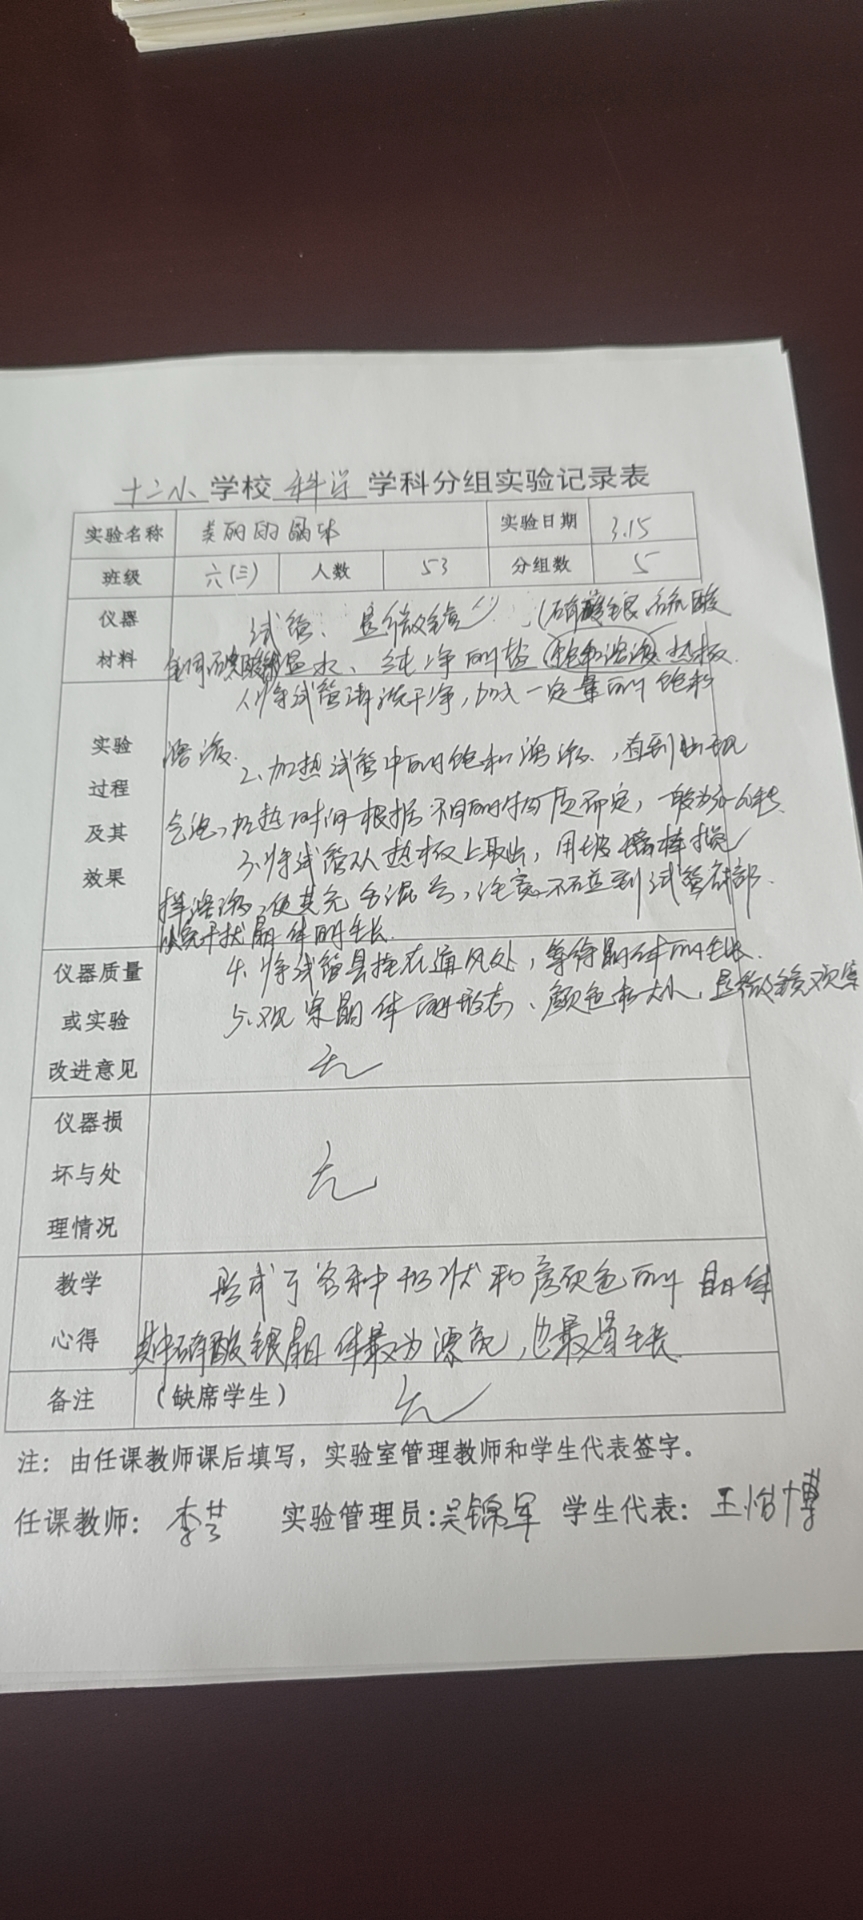 十二小 学校 科学 学科分组实验记录表
实验名称 美丽的晶体 实验日期 3.15
班级 六(三) 人数 53 分组数 5
仪器材料 试管、显微镜 (硝酸银 硫酸
温水、纯净的盐(饱和溶液)热板
实验过程及其效果 1.将试管清洗干净,加入一定量的饱和
溶液.
2.加热试管中的饱和溶液,直到出现
气泡,加热时间根据不同的物质而定,一般为
3.将试管从热板上取出,用玻璃棒搅
拌溶液,使其充分混匀,注意不要碰到试管底部.
以免干扰晶体的生长.
4.将试管悬挂在通风处,等待晶体的生长.
5.观察晶体的形态、颜色和大小,显微镜观察
仪器质量或实验改进意见 无
仪器损坏与处理情况 无
教学心得 形成了各种形状和颜色的晶体
其中硝酸银晶体最为漂亮,也最易生长.
备注 (缺席学生) 无
注:由任课教师课后填写,实验室管理教师和学生代表签字。
任课教师: 李芸 实验管理员:吴锦军 学生代表: 王怡博